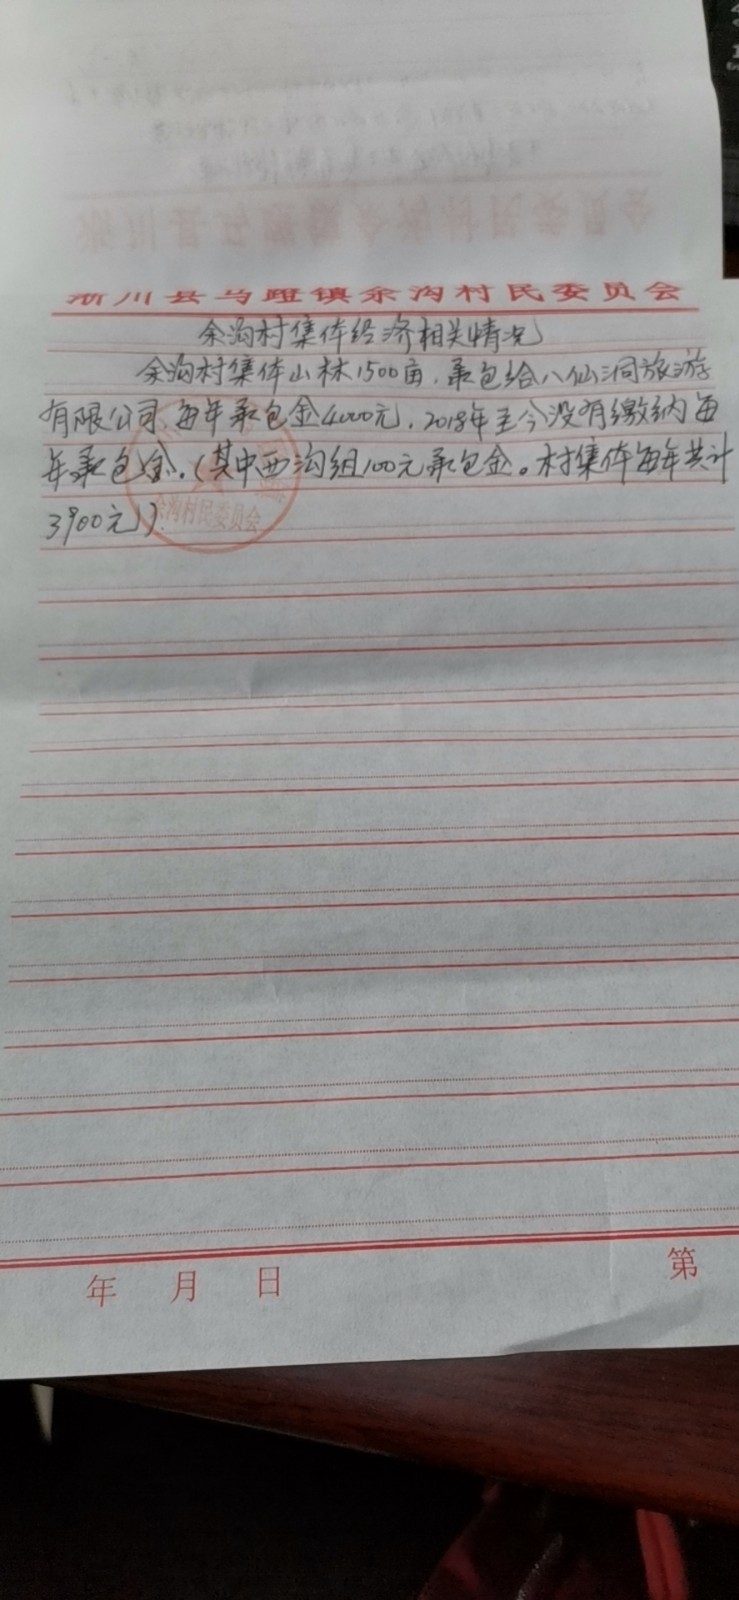 淅川县马蹬镇余沟村民委员会
余沟村集体经济相关情况
余沟村集体山林1500亩，承包给八仙洞旅游
有限公司，每年承包金4000元，2018年至今没有缴纳每
年承包金。（其中西沟组100元承包金。村集体每年共计
3900元）
余沟村民委员会
年 月 日 第